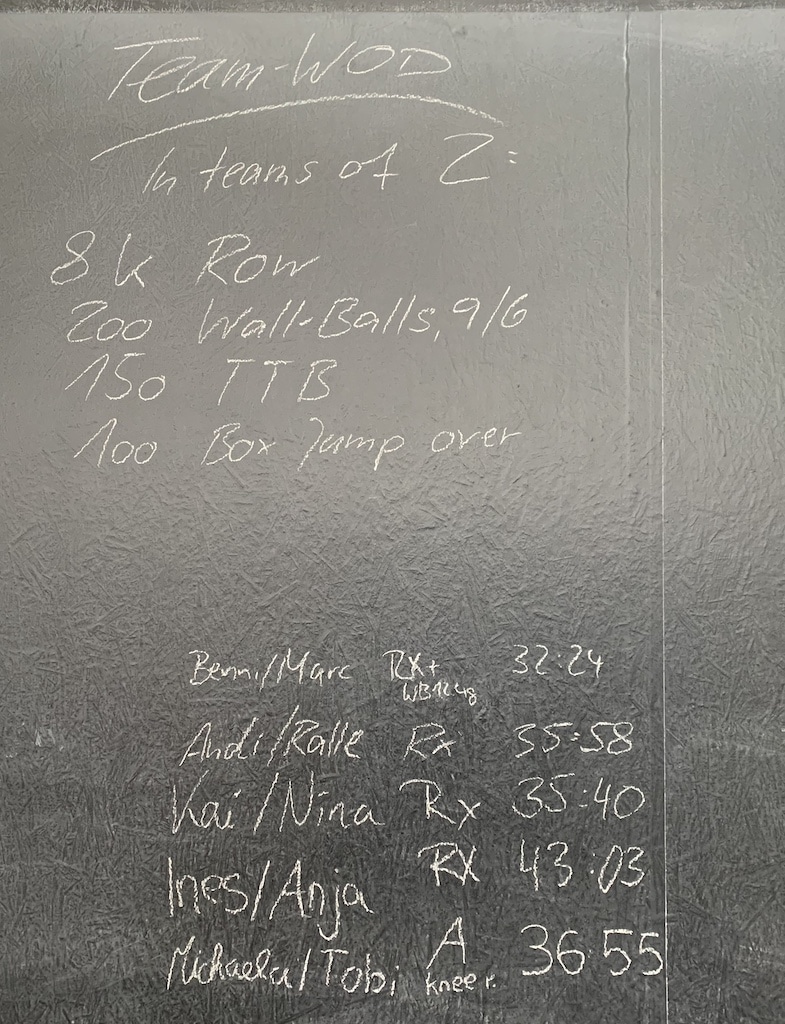 Team-WOD
In teams of 2:
8k Row
200 Wall-Balls, 9/6
150 TTB
100 Box Jump over
Benni/Marc RX+ 32:24
WB12kg
Andi/Ralle Rx 35:58
Kai/Nina Rx 35:40
Ines/Anja RX 43:03
Michaela/Tobi A 36:55
knee r.